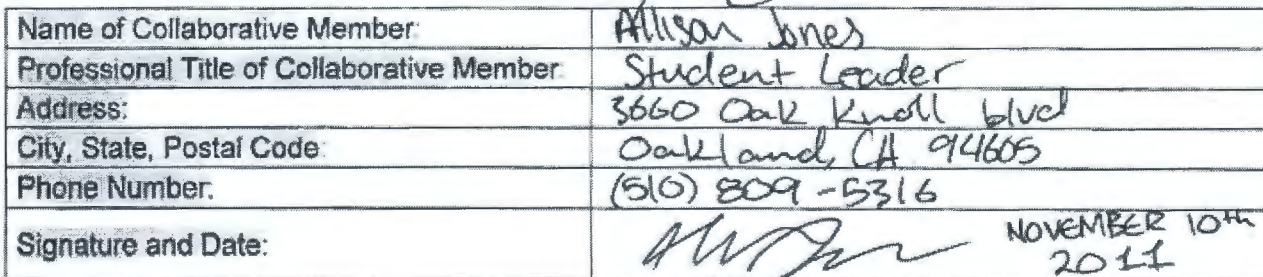 Name of Collaborative Member: Allison Jones
Professional Title of Collaborative Member: Student Leader
Address: 3660 Oak Knoll blvd
City, State, Postal Code: Oakland, CA 94605
Phone Number: (510) 809-5316
Signature and Date: NOVEMBER 10th
2011